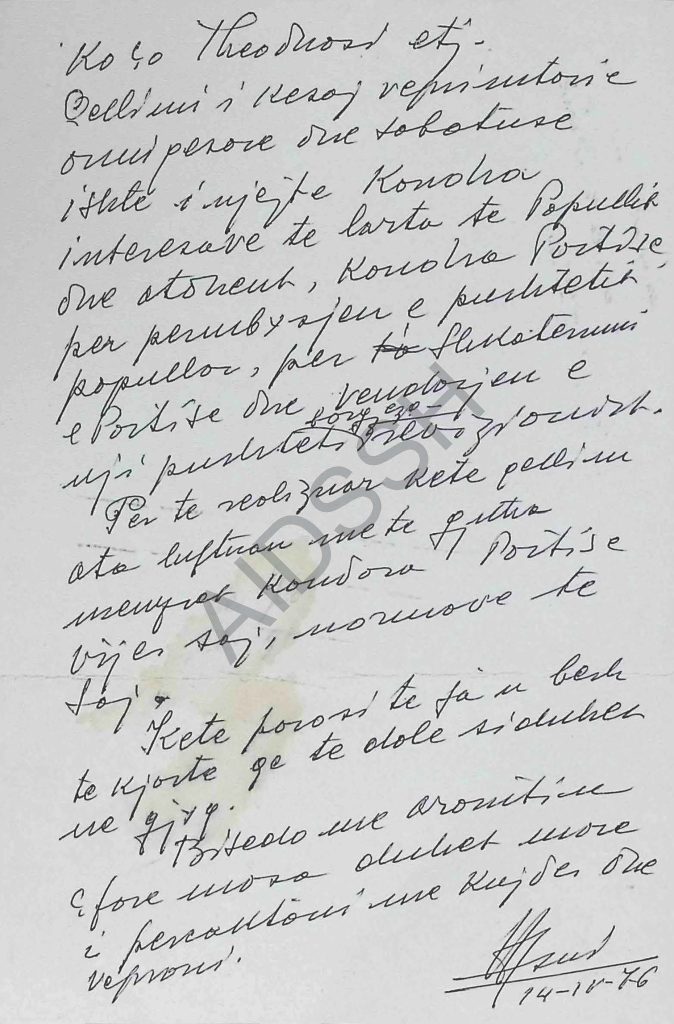 Koço Theodhosi etj.
Qellimi i kesaj veprimtarie
armiqesore dhe sabotuse
ishte i njejte Kondra
interesave te larta te Popullit
dhe atdheut, Kondra Partise
per permbysjen e pushtetit
popullor, per Shkaterrimi
e Partise dhe vendosjen e
borgjezo
nji pushteti revizionist.
Per te realizuar kete qellim
ata luftuan me te gjitha
menyrat Kondora Partise
vijes saj, normave te
saj.
Kete porosi te ja u besh
te kjarte qe te dale si duhet
ne gjyq.
Bisedo me aronitin
çfare masa duhet marre
i percaktoni me kujdes dhe
veproni.
14-IV-76
AIDSSH